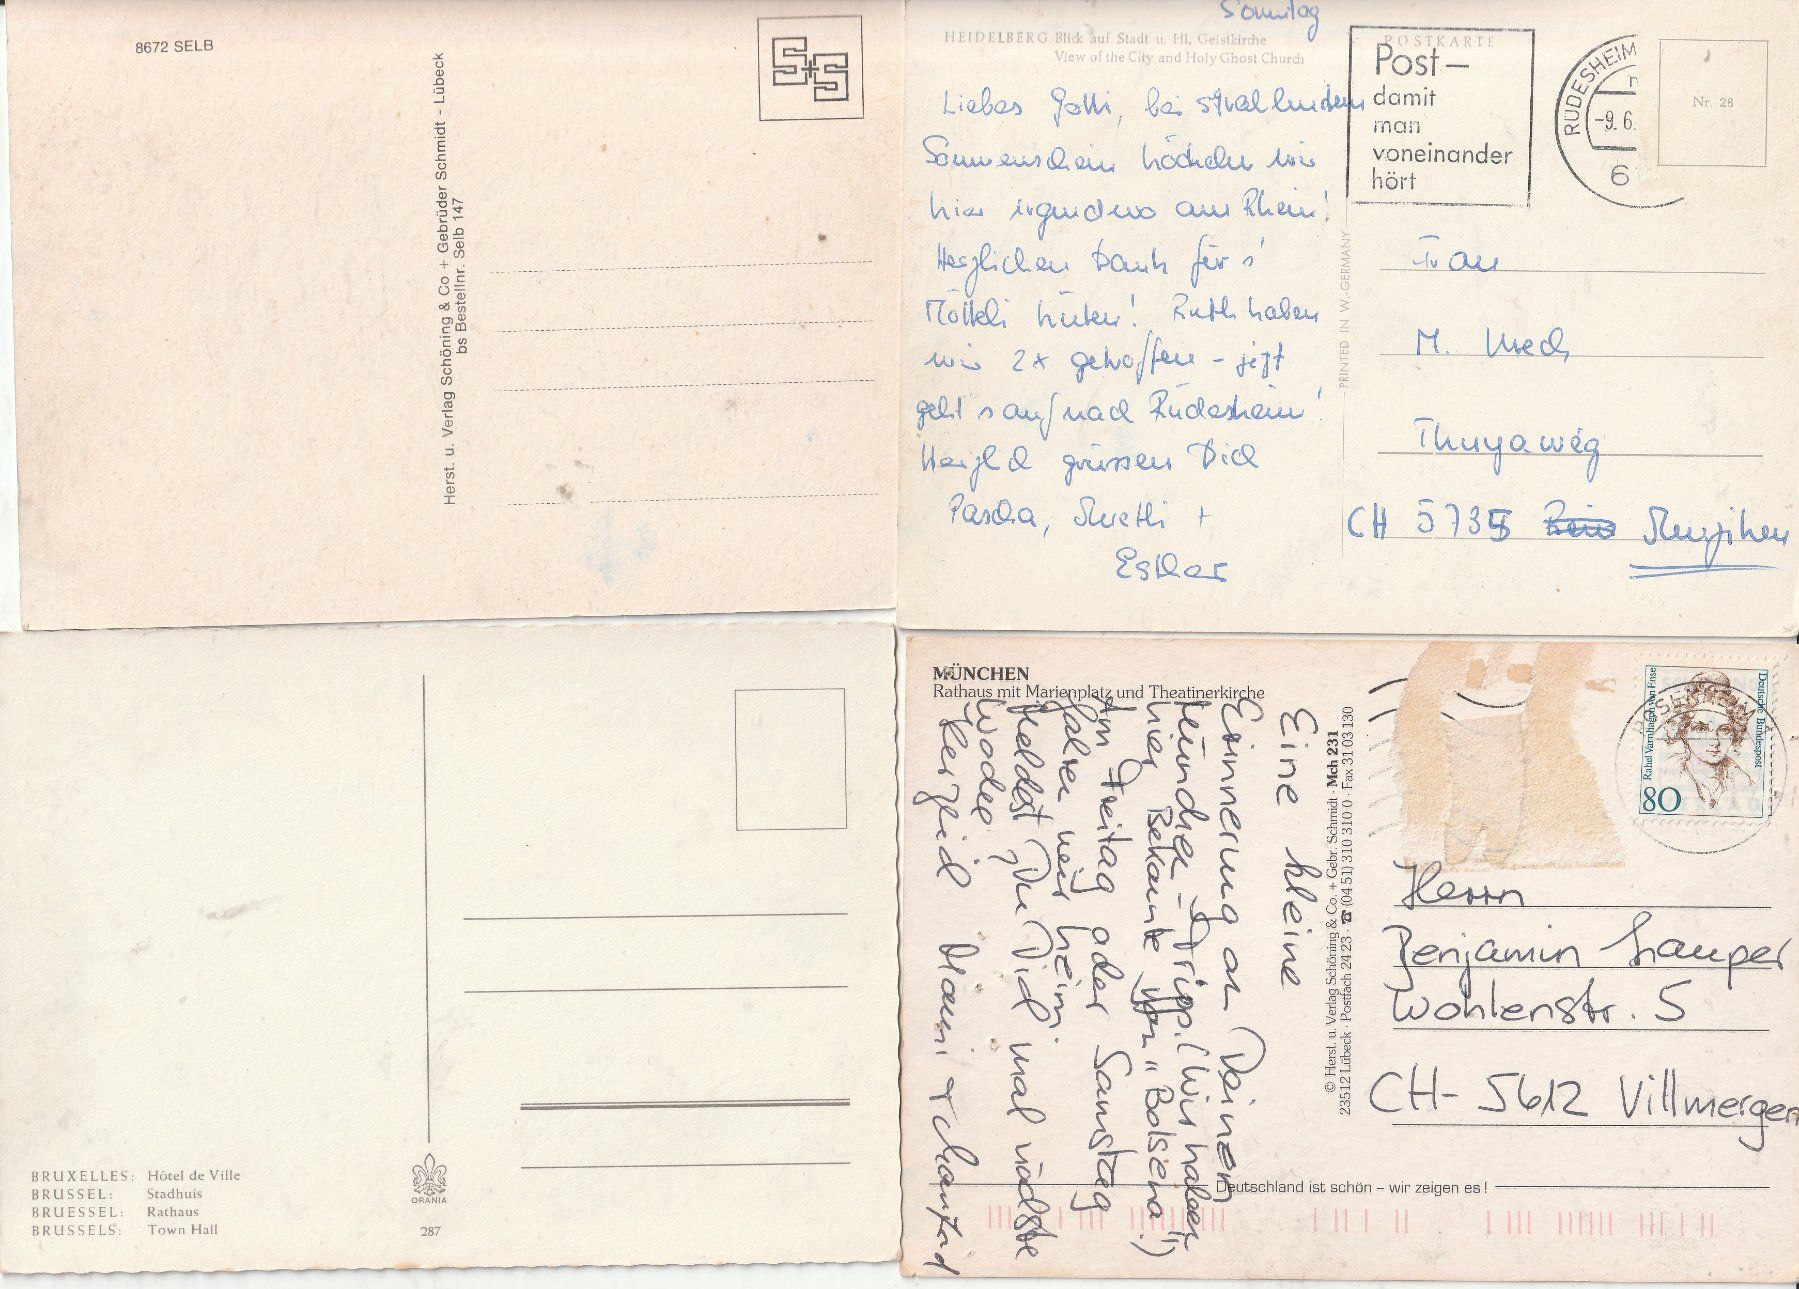 8672 SELB
Herst. u. Verlag Schöning & Co + Gebrüder Schmidt - Lübeck
bs Bestellnr. Selb 147
Sonntag
HEIDELBERG Blick auf Stadt u. Hl. Geistkirche
View of the City and Holy Ghost Church
Liebes Gotti, bei strahlendem
Sonnenschein höckeln wir
hier irgendwo am Rhein!
Herzlichen Dank für's
Mötteli hüten! Ruth haben
wir 2x getroffen - jetzt
geht's auf nach Rüdesheim!
Herzlich grüssen Dich
Pascha, +
Esther
POSTKARTE
Post-
damit
man
voneinander
hört
RÜDESHEIM
-9. 6.
6
Nr. 28
PRINTED IN W.-GERMANY
Frau
M. Urech
Thuyaweg
CH 5735 Menziken
BRUXELLES: Hôtel de Ville
BRUSSEL: Stadhuis
BRUESSEL: Rathaus
BRUSSELS: Town Hall
ORANIA
287
MÜNCHEN
Rathaus mit Marienplatz und Theatinerkirche
Eine kleine
Erinnerung an Deinen
München-Tripp. (Wir haben
hier Bekannte von "Bolsena"!)
Am Freitag oder Samstag
fahren wir heim
Meldest Du Dich mal nächste
Woche
Herzlich Mami +
© Herst. u. Verlag Schöning & Co. + Gebr. Schmidt · Mch 231
23512 Lübeck · Postfach 24 23 · ☎ (04 51) 310 310 0 · Fax 31 03 130
Rahel Varnhagen von Ense
Deutsche Bundespost
80
Herrn
Benjamin Lauper
Wohlenstr. 5
CH- 5612 Villmergen
Deutschland ist schön – wir zeigen es!